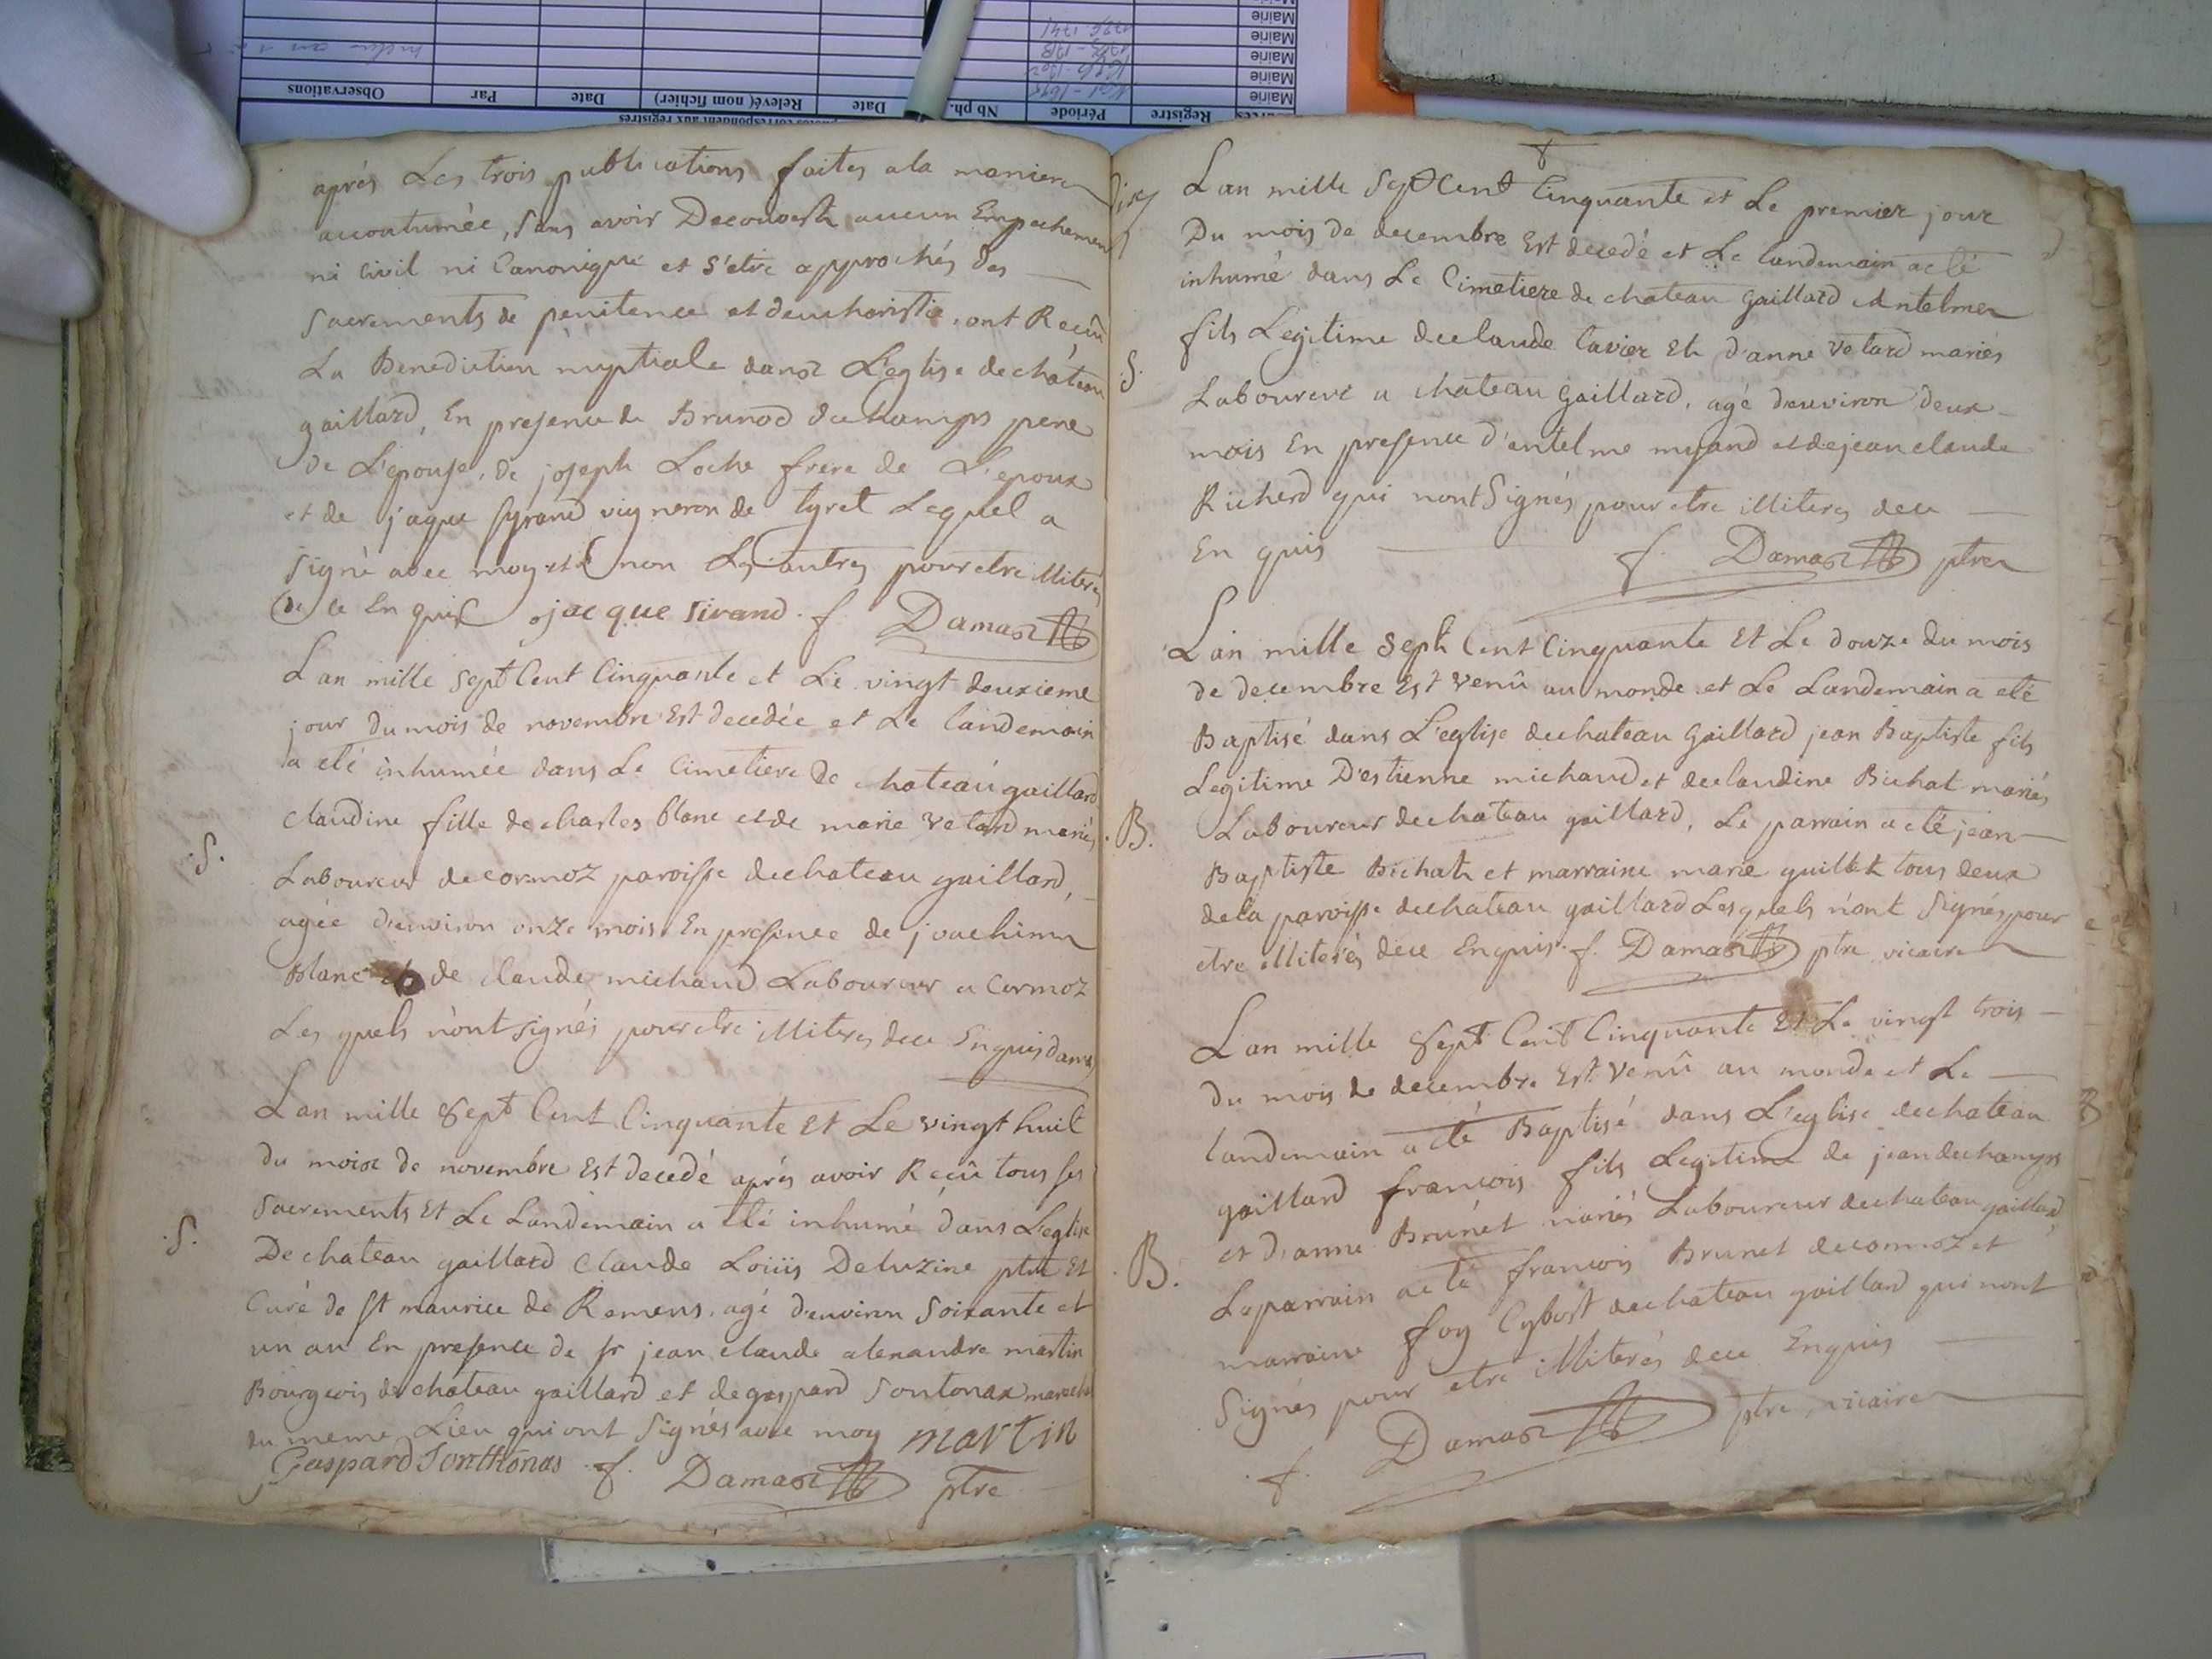 après Les trois publications faites a la maniere
accoutumée, sans avoir Decouvert aucun Empechement
ni Civil ni Canonique et s'etre approchés des
sacrements de penitence et d'eucharistie, ont Reçû
La Benediction nuptiale dans L'eglise de château
gaillard, En presence de Brunod duchamps pere
de L'epouse, de joseph Loche frere de L'epoux
et de jaque syrand vigneron de tyret Lequel a
signé avec moy et non Les autres pour etre illiterés
de ce Enquis jacque sirand. f. Damas
L'an mille sept Cent Cinquante et Le vingt deuxieme
jour du mois de novembre Est decedée et Le landemain
a eté inhumée dans Le Cimetiere de chateau gaillard
claudine fille de charles blanc et de marie Velard mariés
.S.
Laboureur de cormoz paroisse de chateau gaillard,
agée d'environ onze mois En presence de joachim
Blanc et de claude michaud Laboureur a Cormoz
Les quels n'ont signés pour etre illiterés de ce Enquis damas
L'an mille sept Cent Cinquante Et Le vingt huit
du mois de novembre Est decedé aprés avoir Reçû tous ses
sacrements Et Le Landemain a eté inhumé dans L'eglise
.S.
De chateau gaillard Claude Loüis Deluzine ptre Et
Curé de st maurice de Remens, agé d'environ soixante et
un an En presence de sr jean claude alexandre martin
Bourgeois de château gaillard et de gaspard sontonax
du meme Lieu qui ont signés avec moy martin
Gaspard Sonthonas f. Damas ptre
L'an mille sept Cent Cinquante et Le premier jour
Du mois de decembre Est decedé et Le landemain a eté
inhumé dans Le Cimetiere de chateau gaillard Antelme
fils Legitime de claude Cavier Et d'anne Velard mariés
.S.
Laboureur a chateau gaillard, agé d'environ deux
mois En presence d'entelme et de jean claude
Richerd qui n'ont signés pour etre illiterés de ce
Enquis f. Damas ptre
L'an mille sept Cent Cinquante Et Le douze du mois
de decembre Est Venû au monde et Le Landemain a eté
Baptisé dans L'eglise de chateau gaillard jean Baptiste fils
Legitime D'estienne michaud et de claudine Bichat mariés
.B.
Laboureur de chateau gaillard, Le parrain a eté jean
Baptiste Bichat et marraine marie guillet tous deux
de la paroisse de chateau gaillard Lesquels n'ont signés pour
etre illiterés de ce Enquis. f. Damas ptre vicaire
L'an mille sept Cent Cinquante Et Le vingt trois
du mois de decembre Est Venû au monde et Le
landemain a eté Baptisé dans L'eglise de chateau
gaillard francois fils Legitime de jean duchamps
et d'anne Brunet mariés Laboureur de chateau gaillard
.B.
Le parrain a eté francois Brunet de cormoz et
marraine foy Cybost de chateau gaillard qui n'ont
signés pour etre illiterés de ce Enquis
f. Damas ptre vicaire
Observations
Par
Date
Relevé (nom fichier)
Date
Nb ph.
Période
Registre
Mairie
Mairie
Mairie
Mairie
Mairie